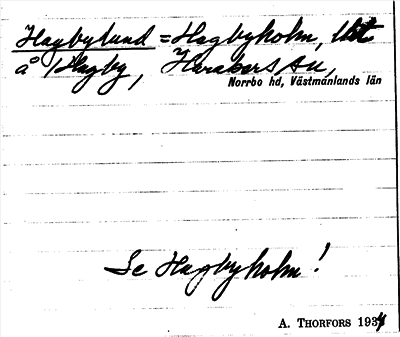 Hagbylund = Hagbyholm,
å Hagby, Haraker sn,
Norrbo hd, Västmanlands län
Se Hagbyholm!
A. THORFORS 1934